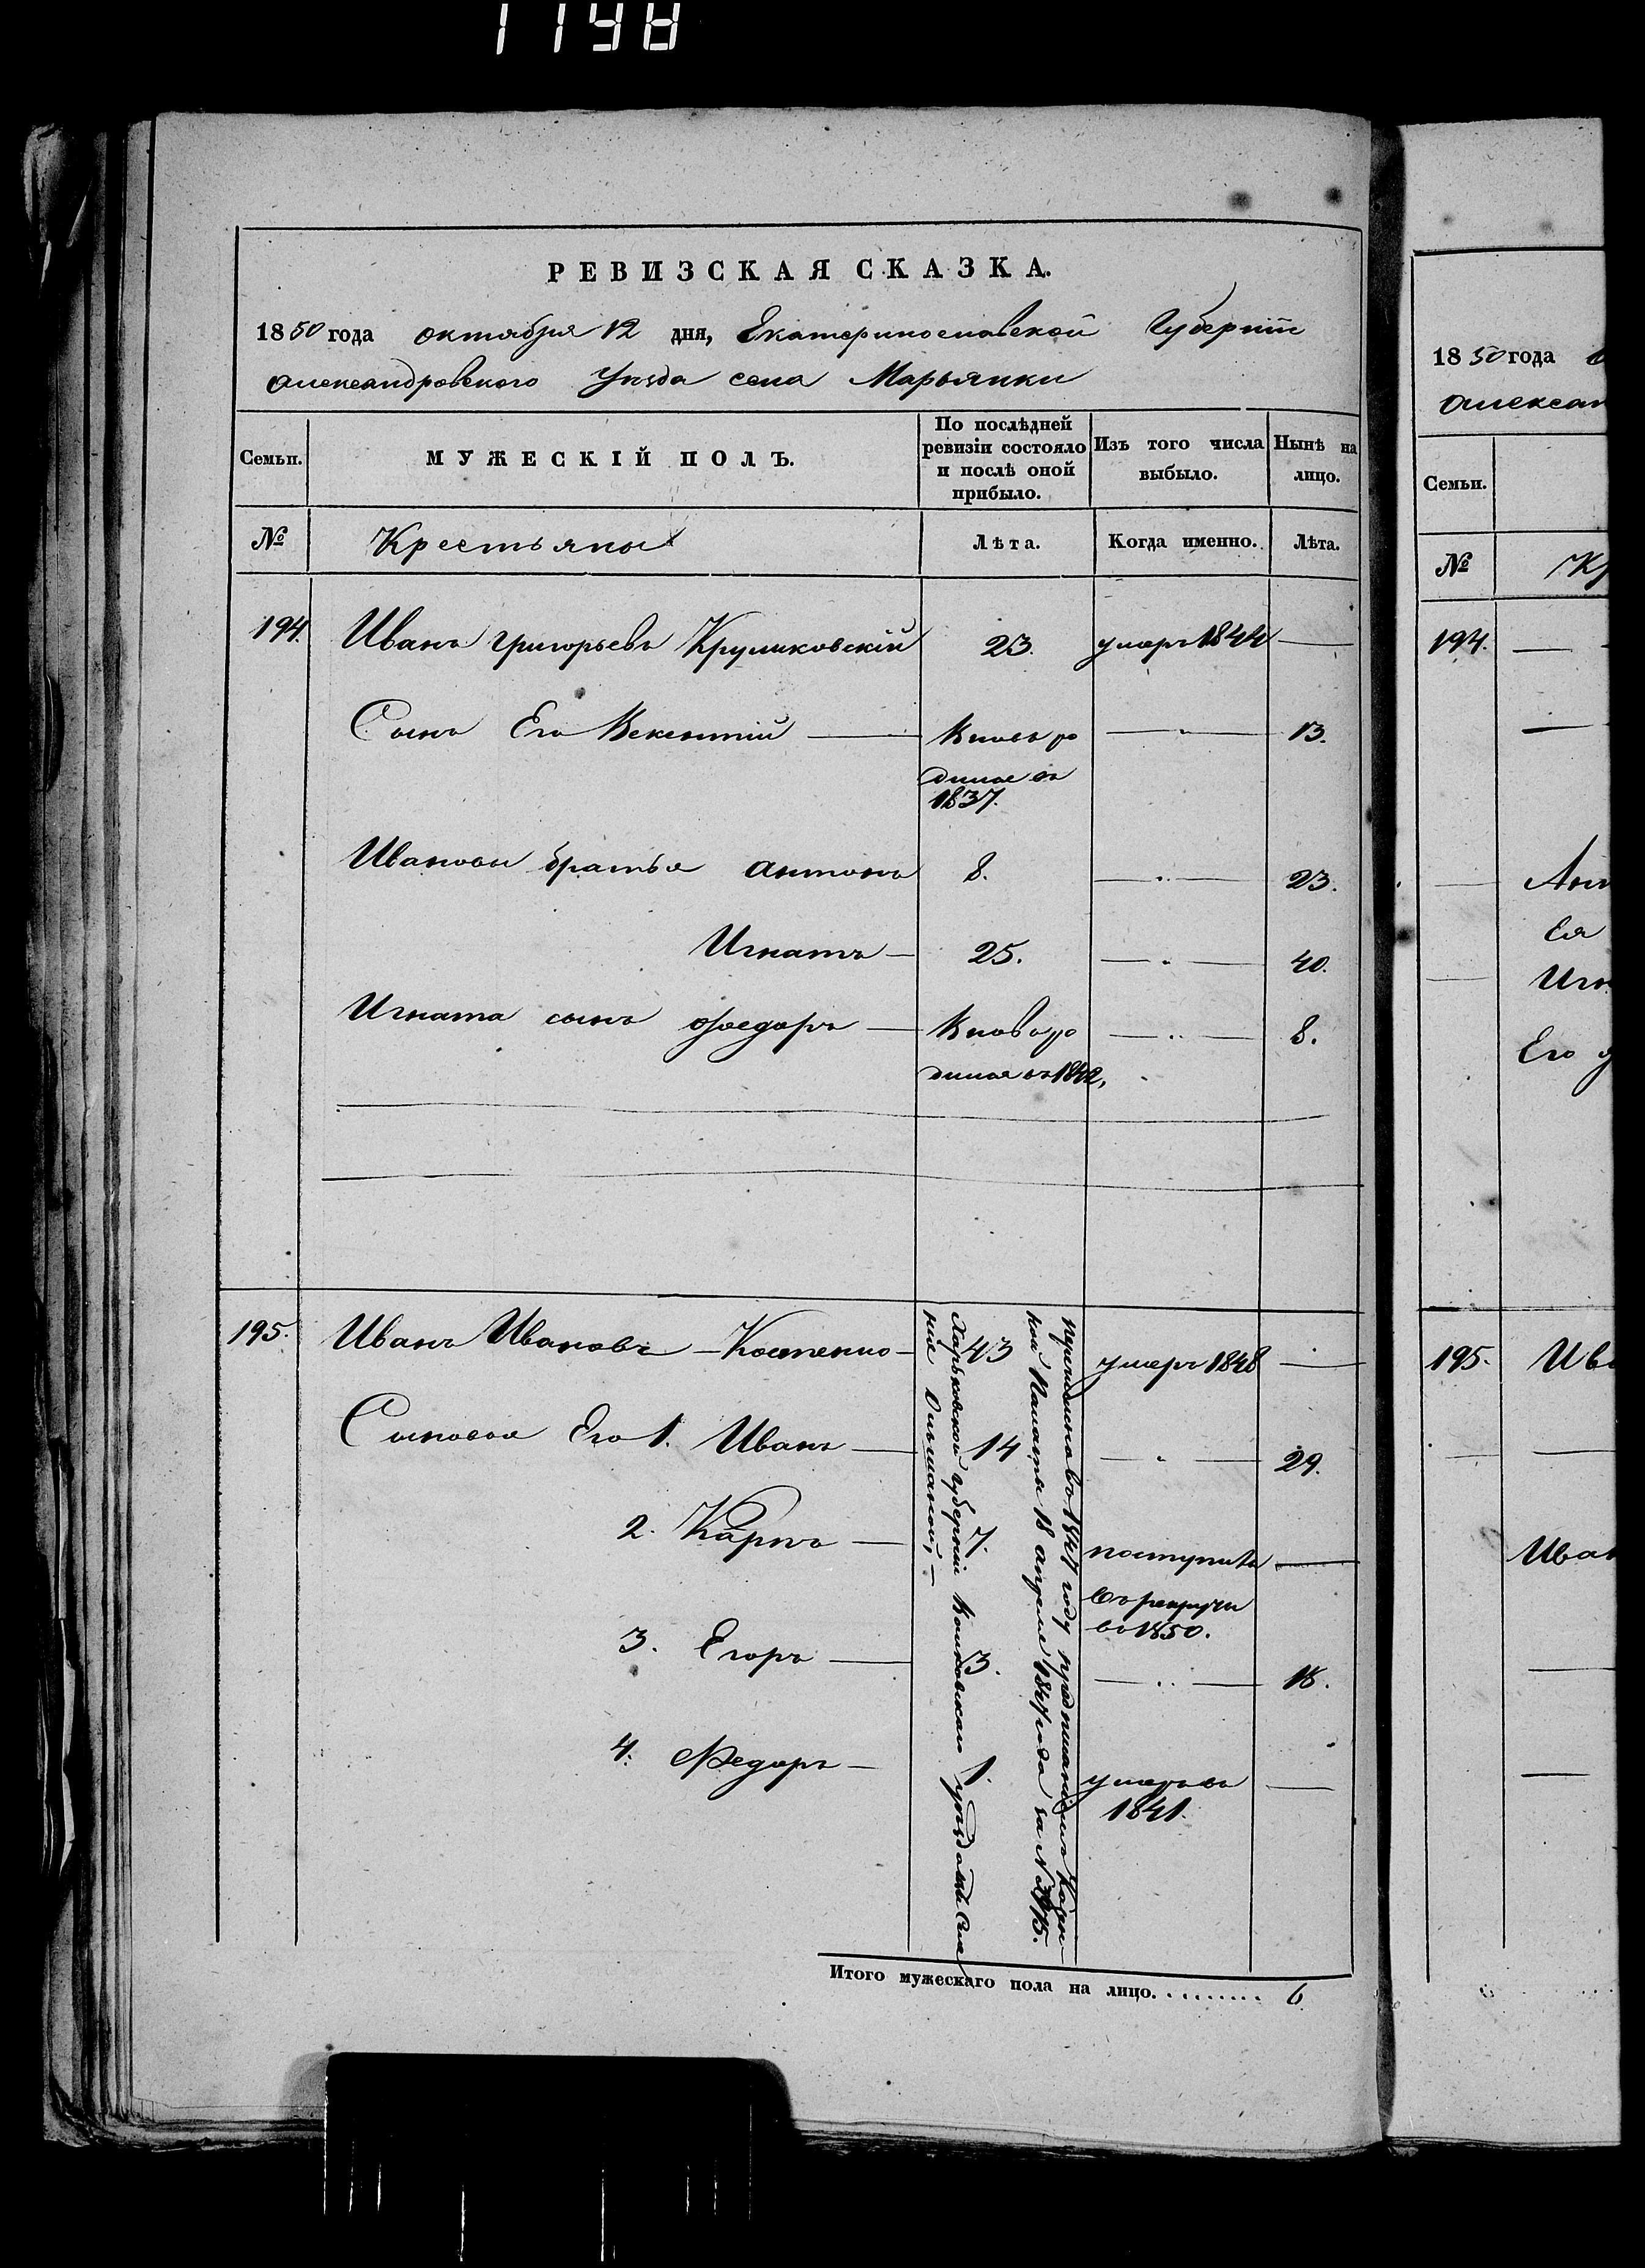 1198
РЕВИЗСКАЯ СКАЗКА.
1850 года октября 12 дня, Екатеринославской Губернии
александровского Уѣзда села Марьянки
Семьи. МУЖЕСКІЙ ПОЛЪ. По послѣдней ревизіи состояло и послѣ оной прибыло. Изъ того числа выбыло. Нынѣ на лицо.
№ Крестьяны Лѣта. Когда именно. Лѣта.
194. Иванъ григорьевъ Круликовскій 23. умеръ 1844 —
Сынъ Его Векентій — Вновь ро — " — 13.
дился въ
1837.
Ивановы братья антонъ 8. — " — 23.
Игнатъ — 25. — " — 40.
Игната сынъ Федоръ — Вновь ро — " — 8.
дился въ 1842.
195. Иванъ Ивановъ — Костенко — 43 умеръ 1848 —
Сыновья Его 1. Иванъ — 14 — " — 29.
2. Карпъ — 7. поступилъ —
въ рекруты
въ 1850.
3. Егоръ — 3. — " — 18.
4. Федоръ — 1. умеръ въ —
1841.
въ 1847 году предписаніемъ
Палаты 18 апреля 1847 года за №
Харьковской губерніи уѣзда
Итого мужескаго пола на лицо. . . . . . . . . 6
1850 года
алексан
Семьи.
№ Кр
194. —
Ант
Ея
Игн
Его
195. Ив
Иван